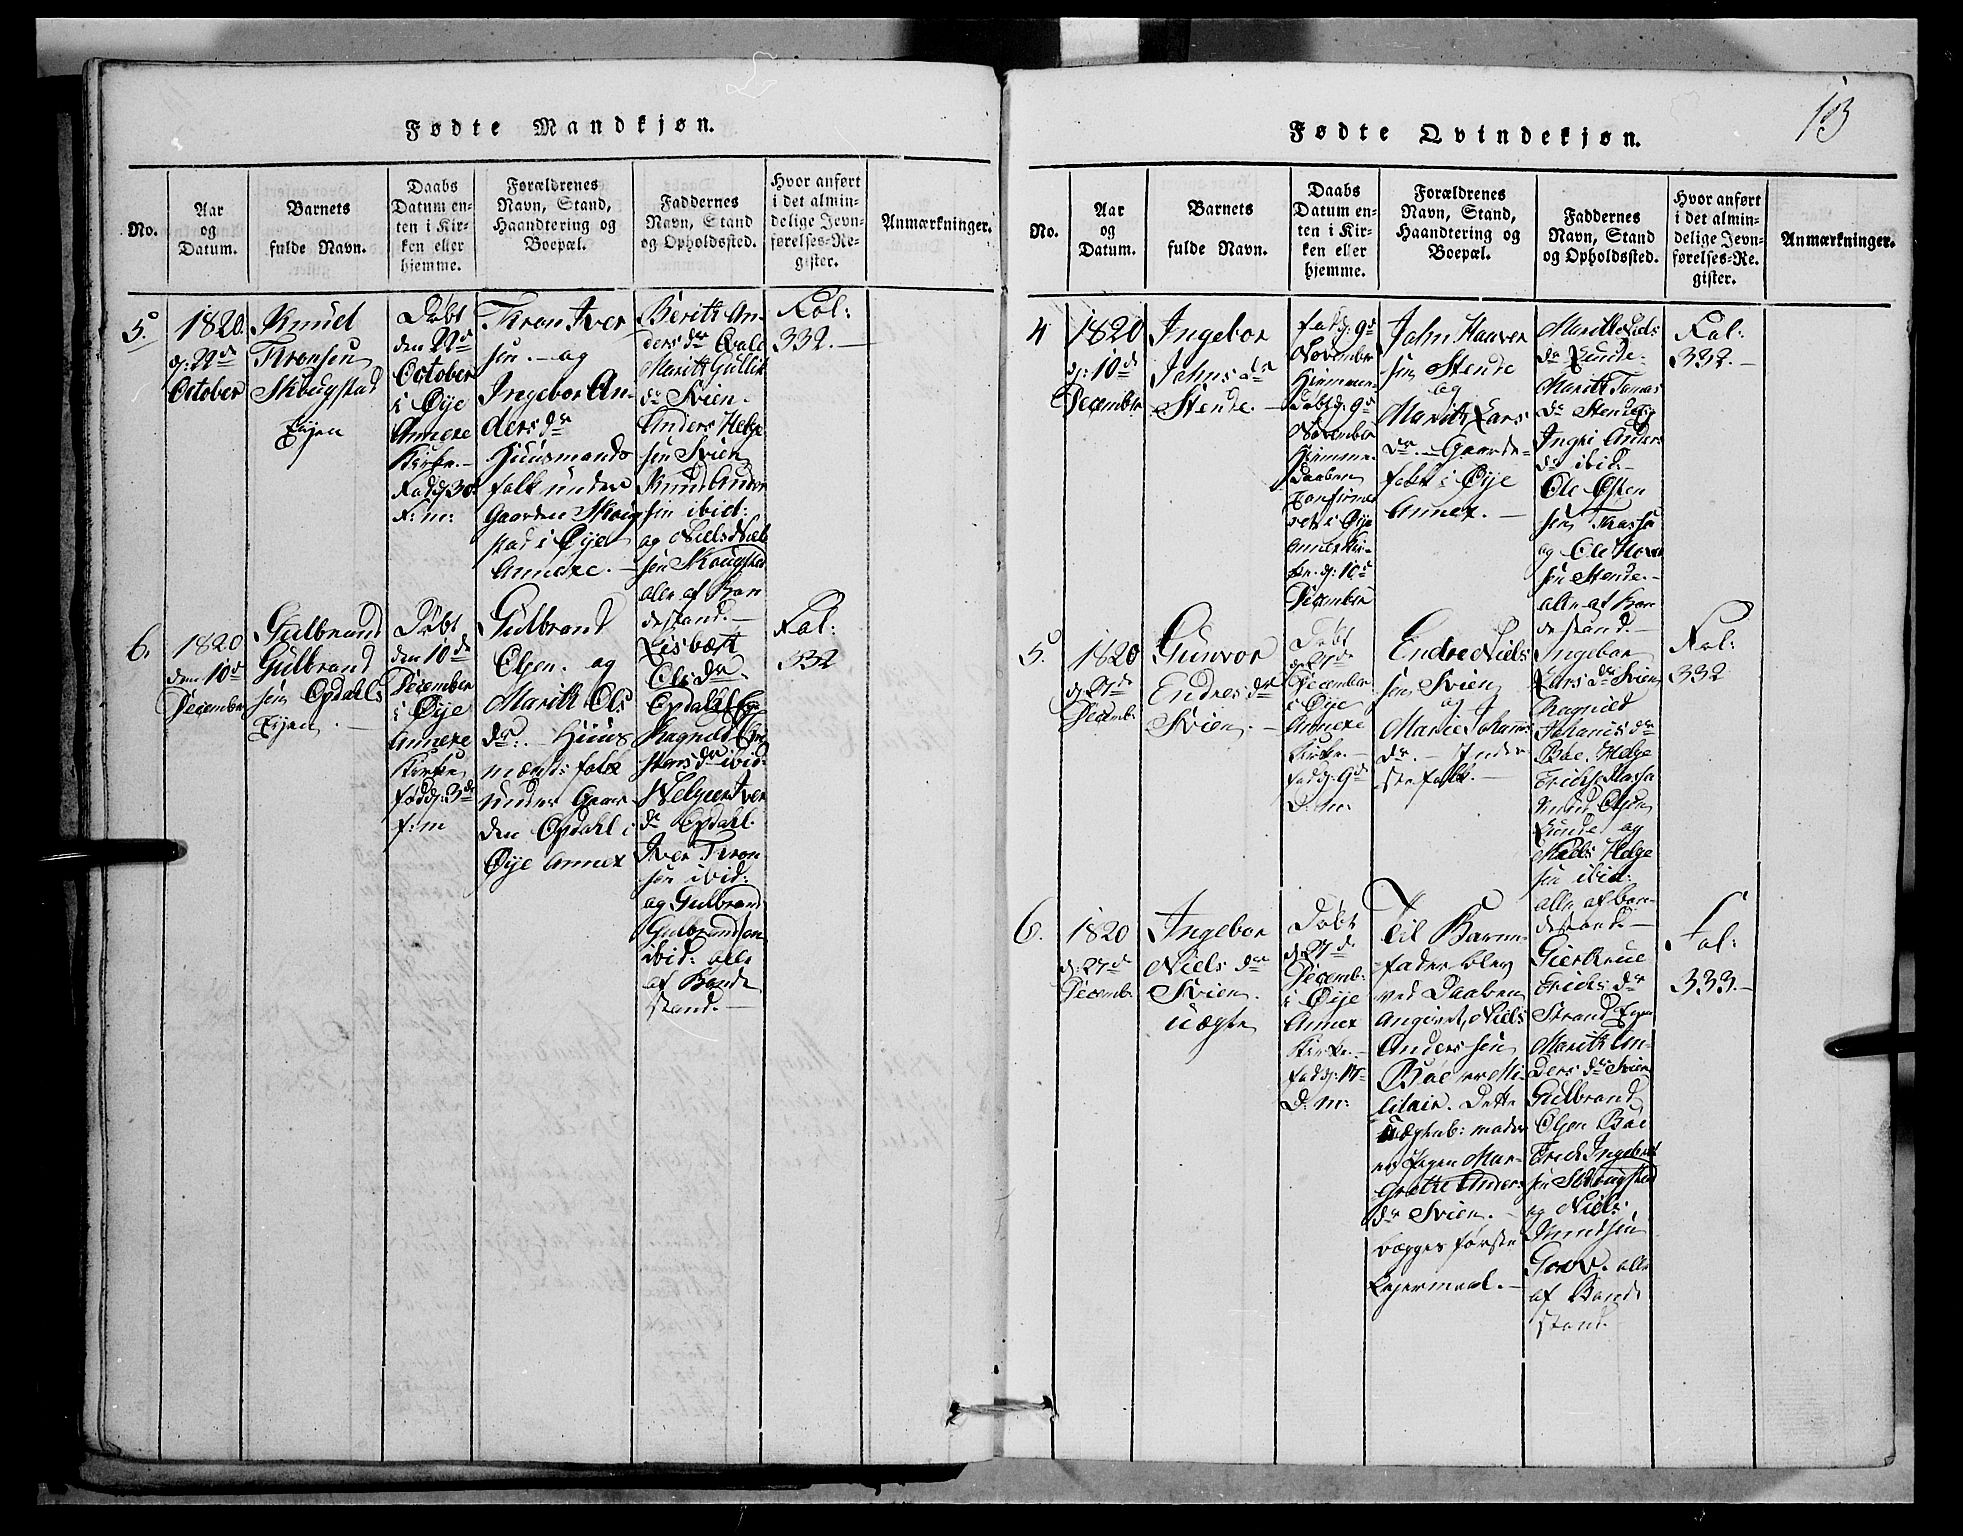 Fødte Mandkjøn.
No.
Aar
og
Datum.
Barnets
fulde Navn.
Daabs
Datum en-
ten i Kir-
ken eller
hjemme.
Forældrenes
Navn, Stand,
Haandtering og
Boepæl.
Faddernes
Navn, Stand
og Opholdssted.
Hvor anført
i det almin-
delige Jevn-
førelses-Re-
gister.
Anmærkninger.
5.
1820.
d: 22de
October
Knud
Tronsen
Skougstad
Eijen
Døbt
den 22de
October
i Øije
Annexe
Kirke.-
Fød d: 30
F: m:
Tron Iver
sen. - og
Ingebor An-
ders dr
Huusmands
folk under
Gaarden Skoug
stad i Øije
Annexe. -
Berith An-
ders dr Qvale
Marith Gullik
dr Svien.
Anders Helge
sen Svien
Knud Ander
sen ibid:
og Niels Niel
sen Skougstad
alle af Bon
destand. -
Fol:
332. -
6.
1820
den 10de
December
Gulbrand
Gulbrand
sen Opdahls
Eijen. -
Døbt
den 10de
December
i Øije
Annexe
Kirke
fød d: 3de
f: m
Gulbrand
Olsen. og
Marith Ols
dr: - Huus
mænds folk
under Gaar
den Opdahl i
Øije Annex
Lisbeth
Ols dr
Opdahl Eijen
Ragnild
stens dr ibid:
Iver
dr Opdahl.
Iver Tron
sen ibid:
og Gulbrand
Gulbrandsen
ibid: alle
af Bonde
stand. -
Fol:
332
13
Fødte Qvindekjøn.
No.
Aar
og
Datum.
Barnets
fulde Navn.
Daabs
Datum en-
ten i Kir-
ken eller
hjemme.
Forældrenes
Navn, Stand,
Haandtering og
Boepæl.
Faddernes
Navn, Stand
og Opholdssted.
Hvor anført
i det almin-
delige Jevn-
førelses-Re-
gister.
Anmærkninger.
4
1820
d: 10de
December
Ingebor
Johns dr
Stende. -
fød d: 9de
November
Hiemme-
døbt d: 9de
November
Hiemme-
daaben
Confirme
ret i Øije
Annex Kir-
ke. d: 10de
December
John Haaver
sen Stende
og
Marith Lars
dr. - Gaard-
folk i Øije
Annex. -
Marith Niels
dr Runde.
Marith Tomas
dr Stende
Ingri Anders
dr ibid. -
Ole Østen
sen
og Ole
sen Stende. -
alle af Bon
destand. -
Fol:
332. -
5.
1820
d: 27de
Decemb:
Gunvor
Endres dr
Svien. -
Døbt
d: 27de
December
i Øije
Annexe
Kirke. -
fød d: 9de
D: m:
Endre Niels
sen Svien
og
Marie Johanns
dr. - Inder
stefolk. -
Ingebor
Lars dr Svien
Ragnild
Johanis dr
Boe. Helge
Erichs
Knud Olsen
Runde og
Niels Helge
sen ibid:
alle af bon-
destand. -
Fol:
332
6.
1820
d: 27de
Decemb:
Ingebor
Niels dr
Svien.
uægte
Døbt
d: 27de
Decemb:
i Øije
Annex
Kirke. -
fød d: 17
D: m:
Til Barne-
fader blev
ved Daaben
angivet, Niels
Andersen
Boe er Mi-
litair. Dette
Uægteb: moder
er Pigen Mar-
Grethe Anders
dr Svien. -
begges første
Lejermaal. -
Giertrue
Erichs dr
Strand Eijen
Marith An-
ders dr Svien
Gulbrand
Olsen Boe
Erich Ingebret
sen Skougstad
og Niels
Knudsen
alle
af Bonde
stand.
Fol:
333. -